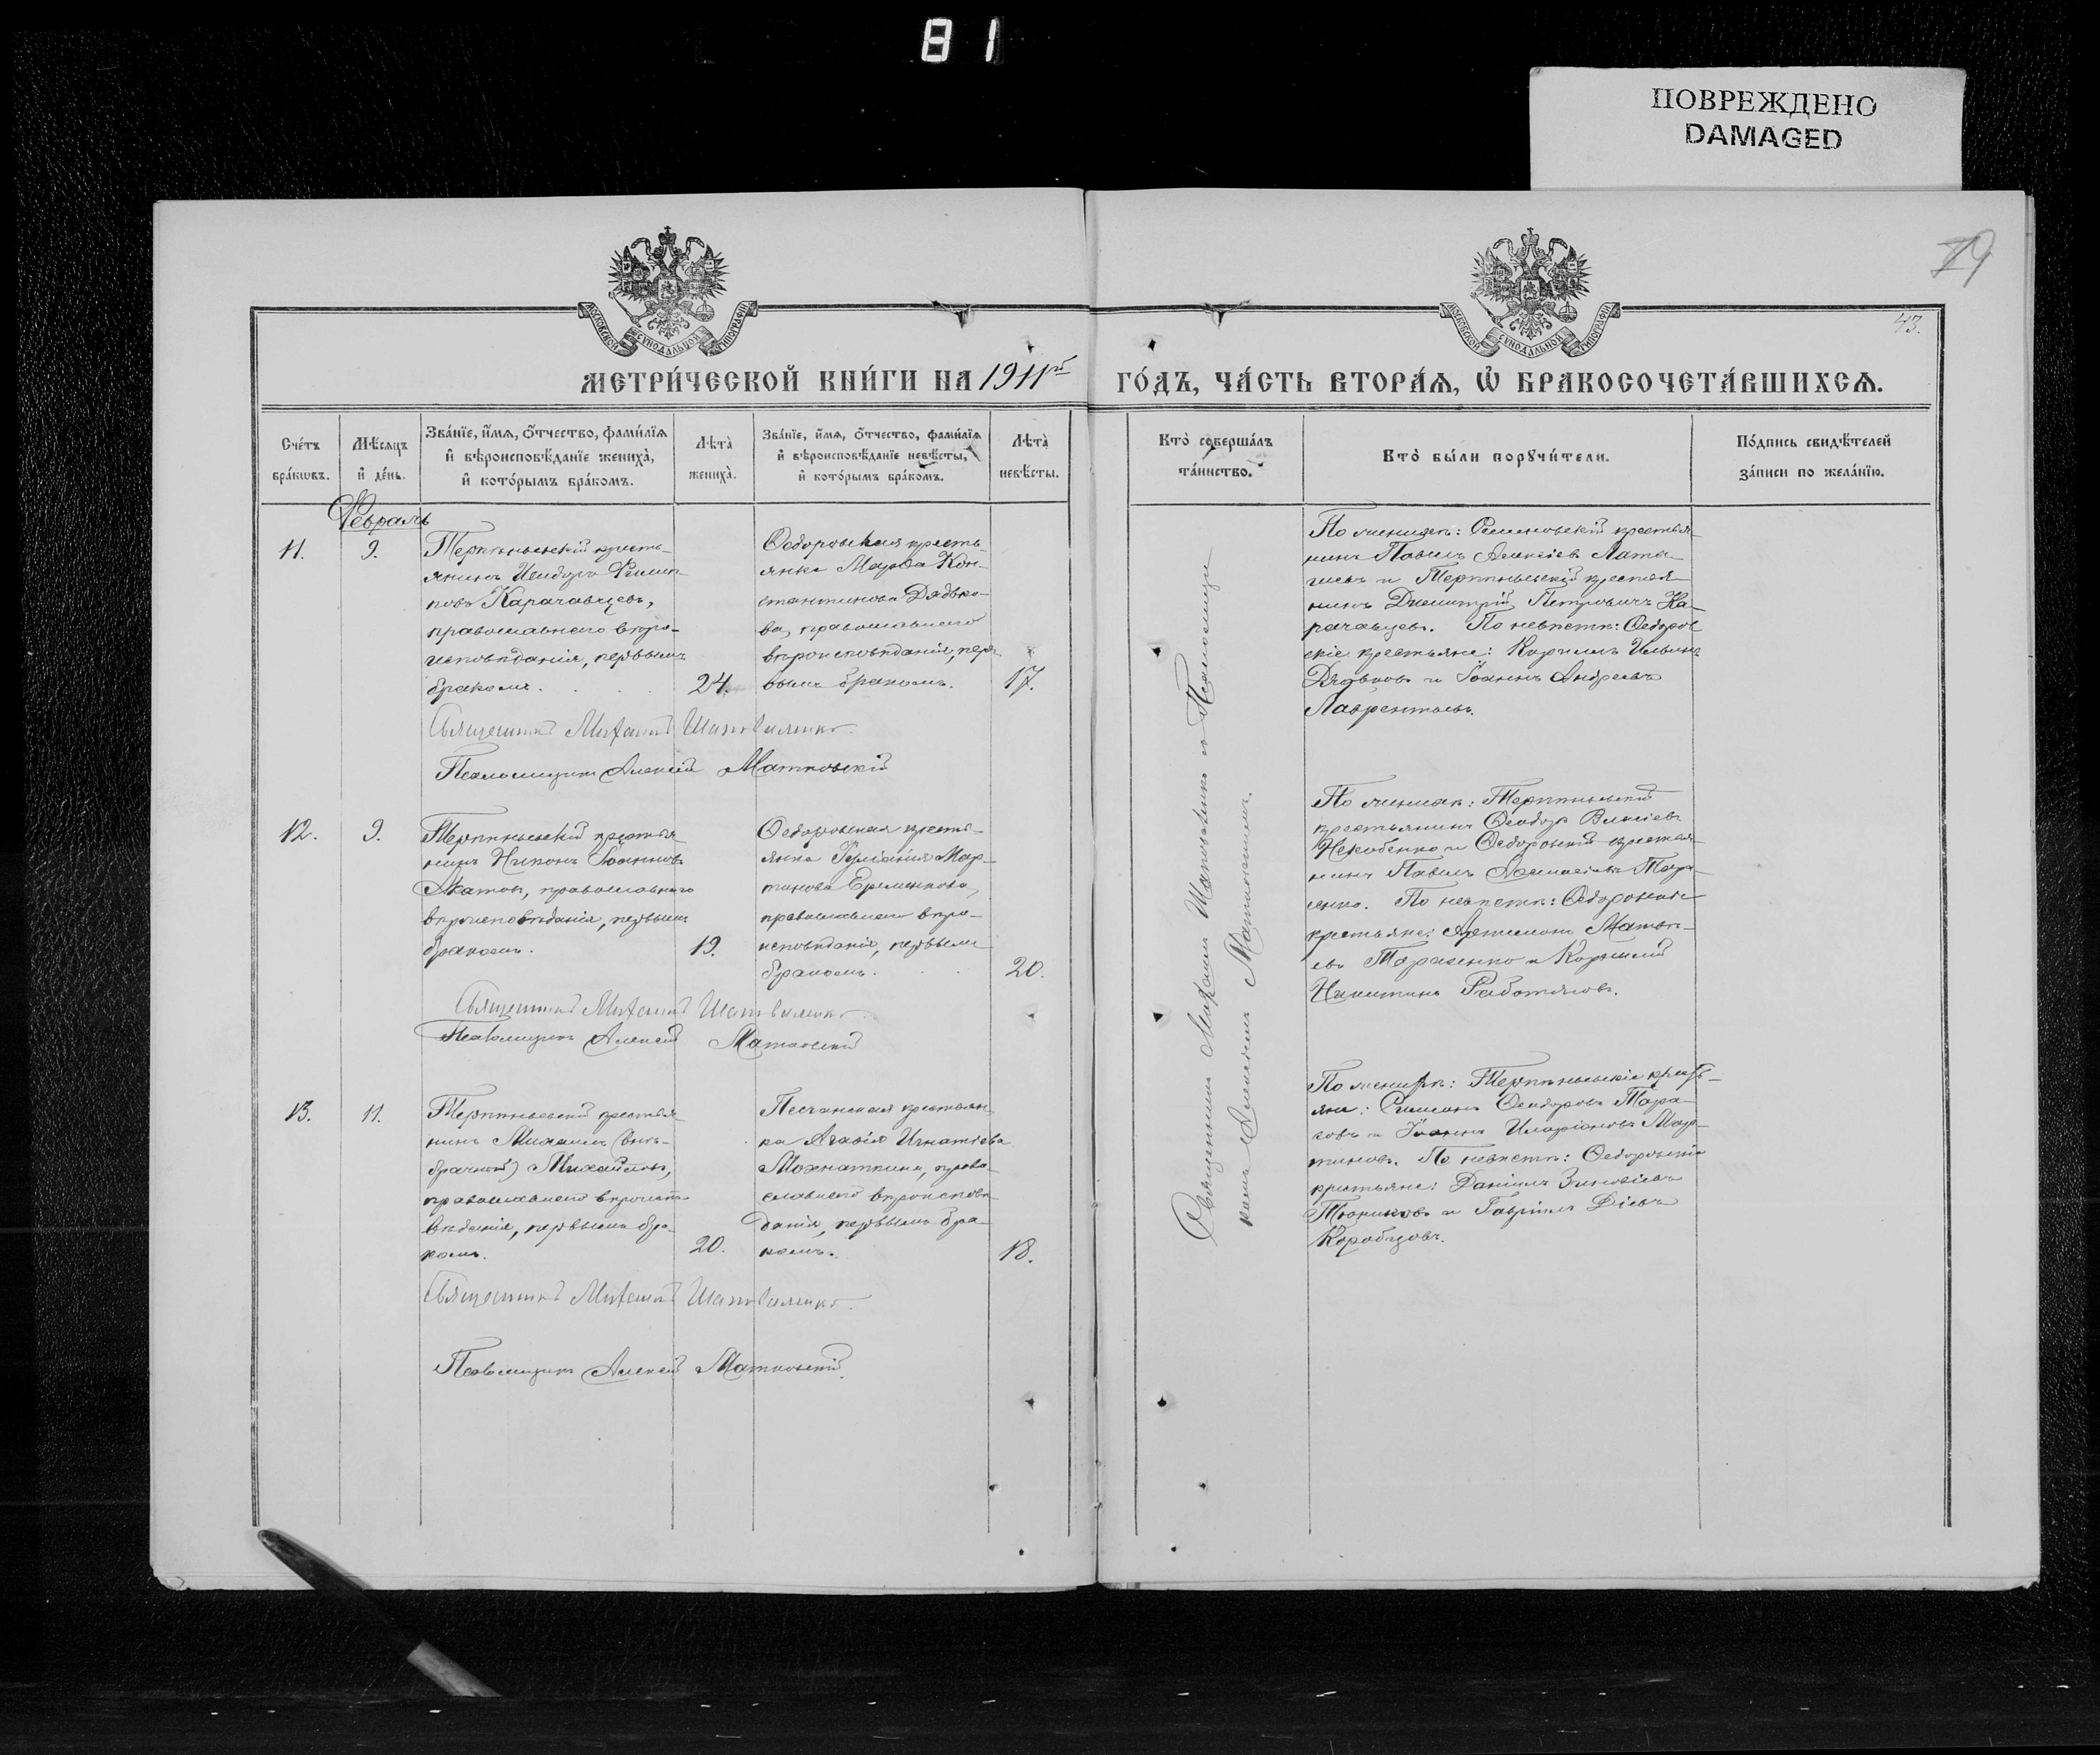 81
ПОВРЕЖДЕНО
DAMAGED
79
43.
МОСКОВСКОЙ СУНОДАЛЬНОЙ ТИПОГРАФІИ
МОСКОВСКОЙ СУНОДАЛЬНОЙ ТИПОГРАФІИ
МЕТРИ́ЧЕСКОЙ КНИ́ГИ НА 1911й ГО́ДЪ, ЧА́СТЬ ВТОРА́Ѧ, Ѡ҆ БРАКОСОЧЕТА́ВШИХСѦ.
Сче́тъ бра́кѡвъ.
Мѣ́сяцъ и҆ де́нь.
Зва́нїе, и҆́мѧ, ѻ҆́тчество, фами́лїѧ и҆ вѣроисповѣ́данїе жениха̀, и҆ кото́рымъ бра́комъ.
Лѣта̀ жениха̀.
Зва́нїе, и҆́мѧ, ѻ҆́тчество, фами́лїѧ и҆ вѣроисповѣ́данїе невѣ́сты, и҆ кото́рымъ бра́комъ.
Лѣта̀ невѣ́сты.
Кто̀ соверша́лъ та́инство.
Кто̀ бы́ли порꙋчи́тели.
По́дпись свидѣ́телей за́писи по жела́нїю.
Февраль
11.
9.
Терпѣньевскій кресть-
янинъ Исидоръ Филип-
повъ Карачавцевъ,
православнаго вѣро-
исповѣданія, первымъ
бракомъ.
24.
Ѳедоровская кресть-
янка Марѳа Кон-
стантинова Дядько-
ва, православнаго
вѣроисповѣданія, пер-
вымъ бракомъ.
17.
По женихѣ: Семеновскій крестья-
нинъ Павелъ Алексѣевъ Латы-
шевъ и Терпѣньевскій крестья-
нинъ Димитрій Петровичъ Ка-
рачавцевъ. По невѣстѣ: Ѳедоров
скіе крестьяне: Кириллъ Ильинъ
Дядьковъ и Іоаннъ Андреевъ
Лаврентьевъ.
Священникъ Михаилъ
Псаломщикъ Алексій Матковскій
12.
9.
Терпѣньевскій крестья
нинъ Никонъ Іоанновъ
Акатовъ, православнаго
вѣроисповѣданія, первымъ
бракомъ.
19.
Ѳедоровская кресть-
янка Іуліанія Мар-
тинова Еременкова,
православнаго вѣро-
исповѣданія, первымъ
бракомъ.
20.
По женихѣ: Терпѣньевскій
крестьянинъ Ѳеодоръ
и Ѳедоровскій крестья-
нинъ Павелъ Тара-
сенко. По невѣстѣ: Ѳедоровскіе
крестьяне: Артемонъ Матвѣ-
евъ Тарасенко и Корнилій
Никитинъ Работяговъ.
Священникъ Михаилъ
Псаломщикъ Алексій Матковскій
13.
11.
Терпѣньевскій крестья
нинъ Михаилъ (внѣ-
брачный) Михайловъ,
православнаго вѣроиспо-
вѣданія, первымъ бра-
комъ.
20.
Песчанская крестьян-
ка Агаѳія Игнатіева
Мохнаткина, право-
славнаго вѣроисповѣ-
данія, первымъ бра-
комъ.
18.
По женихѣ: Терпѣньевскіе кресть-
яне: Симеонъ Ѳеодоровъ Тара-
совъ и Іоаннъ Иларіоновъ Мар-
тиновъ. По невѣстѣ: Ѳедоровскіе
крестьяне: Даніилъ Зиновіевъ
и Гавріилъ Діевъ
Коробцовъ.
Священникъ Михаилъ
Псаломщикъ Алексій Матковскій.
Священникъ Михаилъ и Псаломщи-
комъ Алексіемъ Матковскимъ.